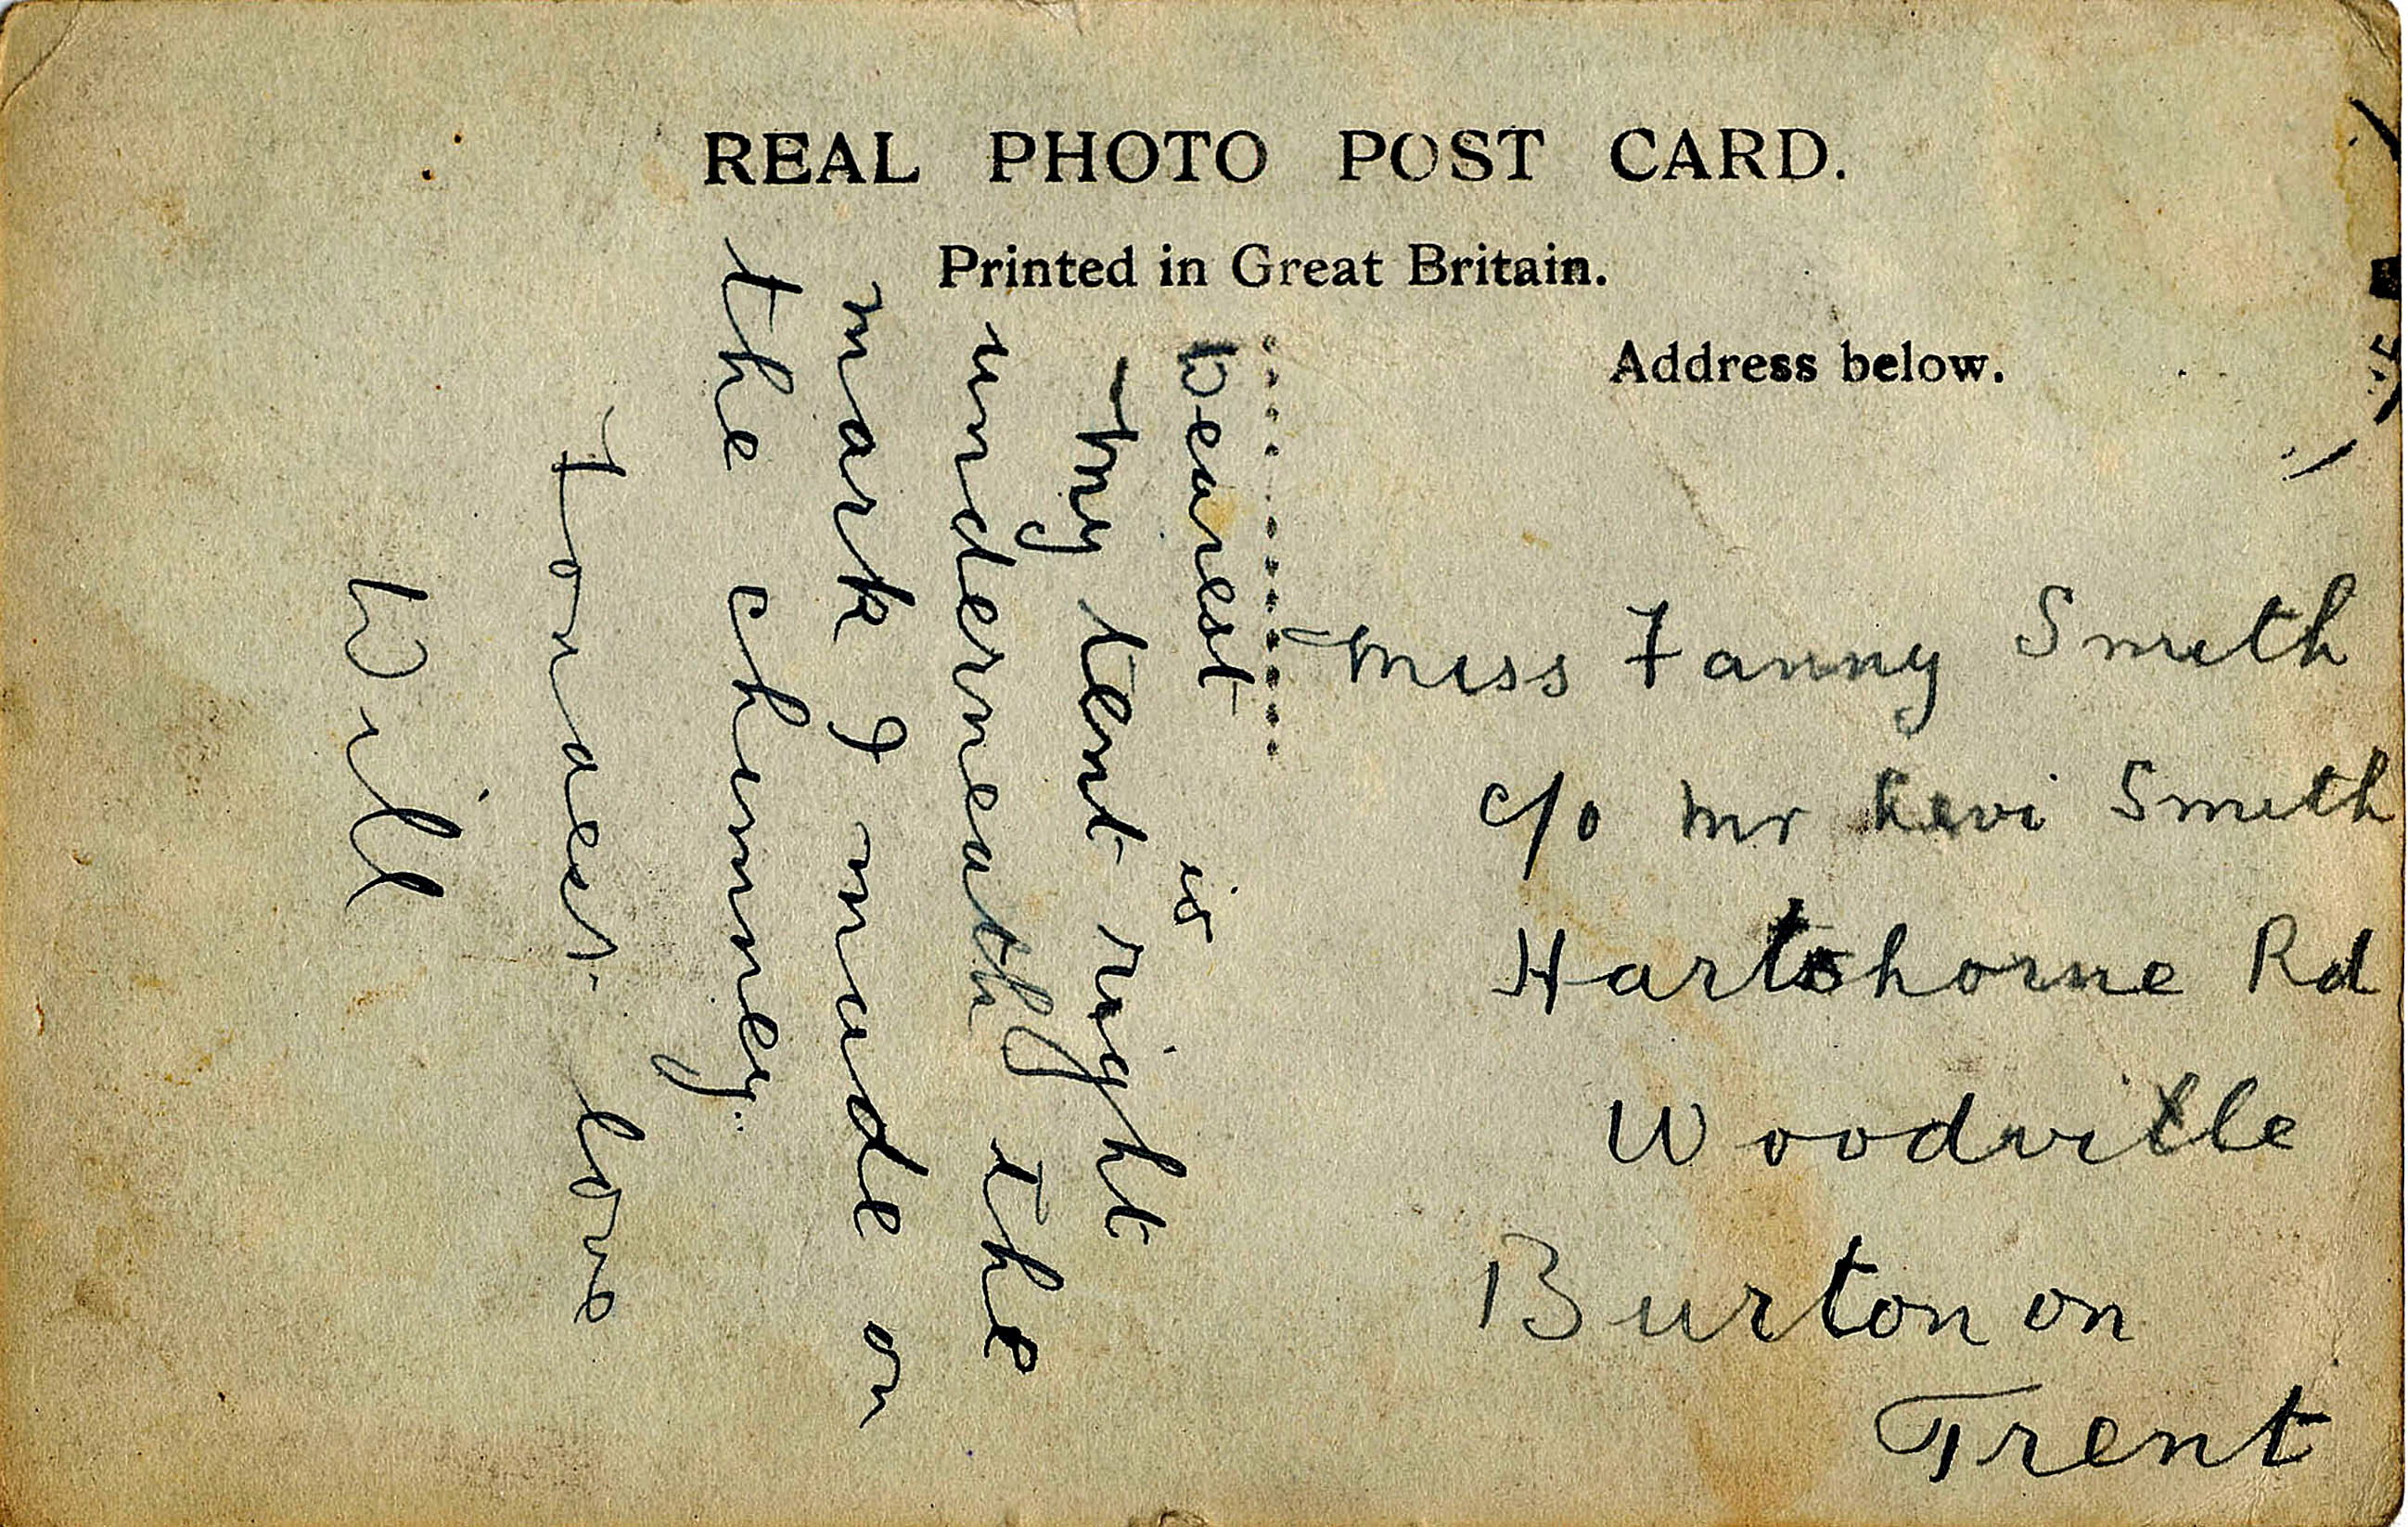 REAL PHOTO POST CARD.
Printed in Great Britain.
Address below.
Dearest
is
My tent right
underneath the
mark I made on
the chimney.
Fondest love
Will
Miss Fanny Smith
c/o Mr Levi Smith
Hartshorne Rd
Woodville
Burton on
Trent